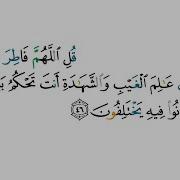 قُلِ ٱللَّهُمَّ فَاطِرَ
عَـٰلِمَ ٱلْغَيْبِ وَٱلشَّهَـٰدَةِ أَنتَ تَحْكُمُ
نُوا۟ فِيهِ يَخْتَلِفُونَ ٤٦